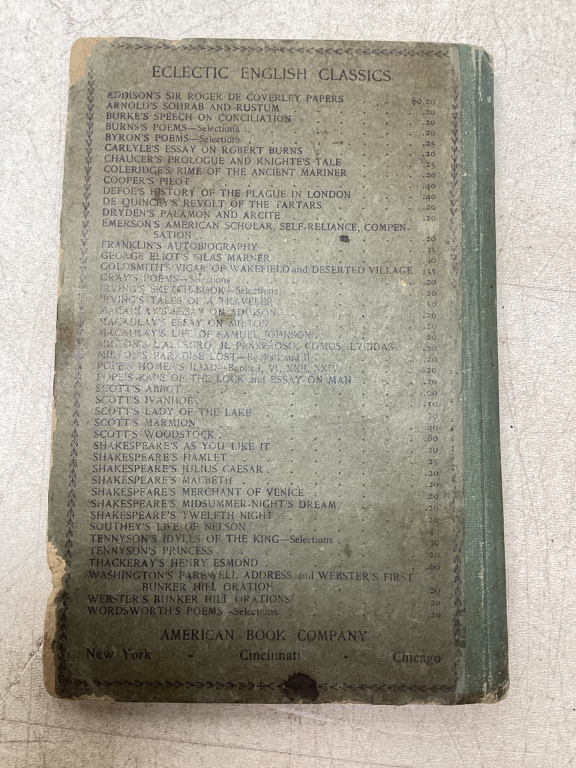 ECLECTIC ENGLISH CLASSICS
ADDISON'S SIR ROGER DE COVERLEY PAPERS $0.20
ARNOLD'S SOHRAB AND RUSTUM .20
BURKE'S SPEECH ON CONCILIATION .20
BURNS'S POEMS—Selections .20
BYRON'S POEMS—Selections
CARLYLE'S ESSAY ON ROBERT BURNS
CHAUCER'S PROLOGUE AND KNIGHTE'S TALE
COLERIDGE'S RIME OF THE ANCIENT MARINER
COOPER'S PILOT
DEFOE'S HISTORY OF THE PLAGUE IN LONDON
DE QUINCEY'S REVOLT OF THE TARTARS
DRYDEN'S PALAMON AND ARCITE
EMERSON'S AMERICAN SCHOLAR, SELF-RELIANCE, COMPEN-
SATION
FRANKLIN'S AUTOBIOGRAPHY
GEORGE ELIOT'S SILAS MARNER
GOLDSMITH'S VICAR OF WAKEFIELD and DESERTED VILLAGE
GRAY'S POEMS—Selections
IRVING'S SKETCH-BOOK—Selections
IRVING'S TALES OF A TRAVELER
MACAULAY'S ESSAY ON ADDISON
MACAULAY'S ESSAY ON MILTON
MACAULAY'S LIFE OF SAMUEL JOHNSON
MILTON'S L'ALLEGRO, IL PENSEROSO, COMUS, LYCIDAS
MILTON'S PARADISE LOST—Books I and II
POPE'S HOMER'S ILIAD—Books I, VI, XXII, XXIV
POPE'S RAPE OF THE LOCK and ESSAY ON MAN
SCOTT'S ABBOT
SCOTT'S IVANHOE
SCOTT'S LADY OF THE LAKE
SCOTT'S MARMION
SCOTT'S WOODSTOCK
SHAKESPEARE'S AS YOU LIKE IT
SHAKESPEARE'S HAMLET
SHAKESPEARE'S JULIUS CAESAR
SHAKESPEARE'S MACBETH
SHAKESPEARE'S MERCHANT OF VENICE
SHAKESPEARE'S MIDSUMMER-NIGHT'S DREAM
SHAKESPEARE'S TWELFTH NIGHT
SOUTHEY'S LIFE OF NELSON
TENNYSON'S IDYLLS OF THE KING—Selections
TENNYSON'S PRINCESS
THACKERAY'S HENRY ESMOND
WASHINGTON'S FAREWELL ADDRESS and WEBSTER'S FIRST
BUNKER HILL ORATION
WEBSTER'S BUNKER HILL ORATIONS .20
WORDSWORTH'S POEMS—Selections .20
AMERICAN BOOK COMPANY
New York · Cincinnati · Chicago